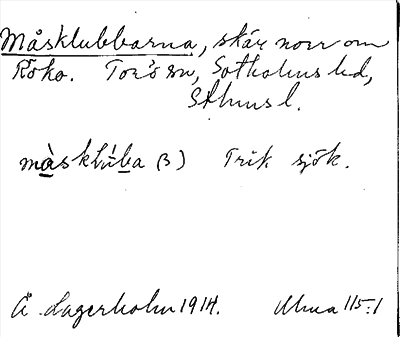 Måsklubbarna, skär norr om
Röko. Torö sn, Sotholms hd,
Sthms l.
måsklúba (3) Trik sjök.
Å. Lagerholm 1914. Uhua 115:1